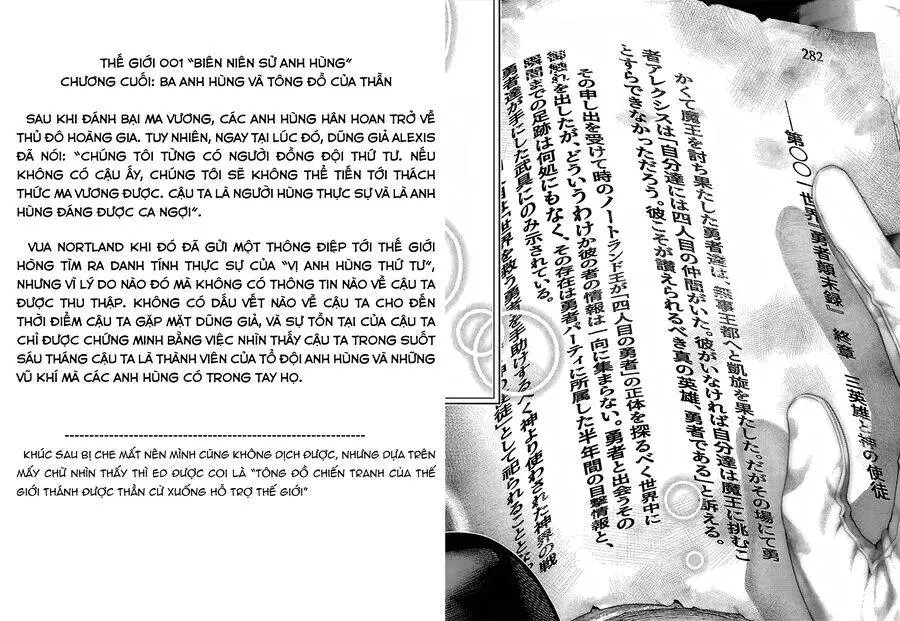 THẾ GIỚI 001 "BIÊN NIÊN SỬ ANH HÙNG"
CHƯƠNG CUỐI: BA ANH HÙNG VÀ TÔNG ĐỒ CỦA THẦN
SAU KHI ĐÁNH BẠI MA VƯƠNG, CÁC ANH HÙNG HÂN HOAN TRỞ VỀ
THỦ ĐÔ HOÀNG GIA. TUY NHIÊN, NGAY TẠI LÚC ĐÓ, DŨNG GIẢ ALEXIS
ĐÃ NÓI: "CHÚNG TÔI TỪNG CÓ NGƯỜI ĐỒNG ĐỘI THỨ TƯ. NẾU
KHÔNG CÓ CẬU ẤY, CHÚNG TÔI SẼ KHÔNG THỂ TIẾN TỚI THÁCH
THỨC MA VƯƠNG ĐƯỢC. CẬU TA LÀ NGƯỜI HÙNG THỰC SỰ VÀ LÀ ANH
HÙNG ĐÁNG ĐƯỢC CA NGỢI".
VUA NORTLAND KHI ĐÓ ĐÃ GỬI MỘT THÔNG ĐIỆP TỚI THẾ GIỚI
HÒNG TÌM RA DANH TÍNH THỰC SỰ CỦA "VỊ ANH HÙNG THỨ TƯ",
NHƯNG VÌ LÝ DO NÀO ĐÓ MÀ KHÔNG CÓ THÔNG TIN NÀO VỀ CẬU TA
ĐƯỢC THU THẬP. KHÔNG CÓ DẤU VẾT NÀO VỀ CẬU TA CHO ĐẾN
THỜI ĐIỂM CẬU TA GẶP MẶT DŨNG GIẢ, VÀ SỰ TỒN TẠI CỦA CẬU TA
CHỈ ĐƯỢC CHỨNG MINH BẰNG VIỆC NHÌN THẤY CẬU TA TRONG SUỐT
SÁU THÁNG CẬU TA LÀ THÀNH VIÊN CỦA TỔ ĐỘI ANH HÙNG VÀ NHỮNG
VŨ KHÍ MÀ CÁC ANH HÙNG CÓ TRONG TAY HỌ.
KHÚC SAU BỊ CHE MẤT NÊN MÌNH CŨNG KHÔNG DỊCH ĐƯỢC, NHƯNG DỰA TRÊN
MẤY CHỮ NHÌN THẤY THÌ ED ĐƯỢC COI LÀ "TÔNG ĐỒ CHIẾN TRANH CỦA THẾ
GIỚI THÁNH ĐƯỢC THẦN CỬ XUỐNG HỖ TRỢ THẾ GIỚI"
282
──第〇〇一世界『勇者顛末録』 終章 三英雄と神の使徒
かくて魔王を討ち果たした勇者達は、無事王都へと凱旋を果たした。だがその場にて勇
者アレクシスは「自分達には四人目の仲間がいた。彼がいなければ自分達は魔王に挑むこ
とすらできなかっただろう。彼こそが讃えられるべき真の英雄、勇者である」と訴える。
その申し出を受けて時のノートランド王が「四人目の勇者」の正体を探るべく世界中に
御触れを出したが、どういうわけか彼の者の情報は一向に集まらない。勇者と出会うその
瞬間までの足跡は何処にもなく、その存在は勇者パーティに所属した半年間の目撃情報と、
勇者達が手にした武具にのみ示されている。
世界を救う勇者を手助けするべく神より使わされた神界の戦
徒」として祀られることとな